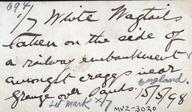 694
1/7 White Wagtails
taken on the side of
a railway embankment
amongst craggs near
Grange over Sands. 15/5/98
Set mark 4/7
MVZ-3020